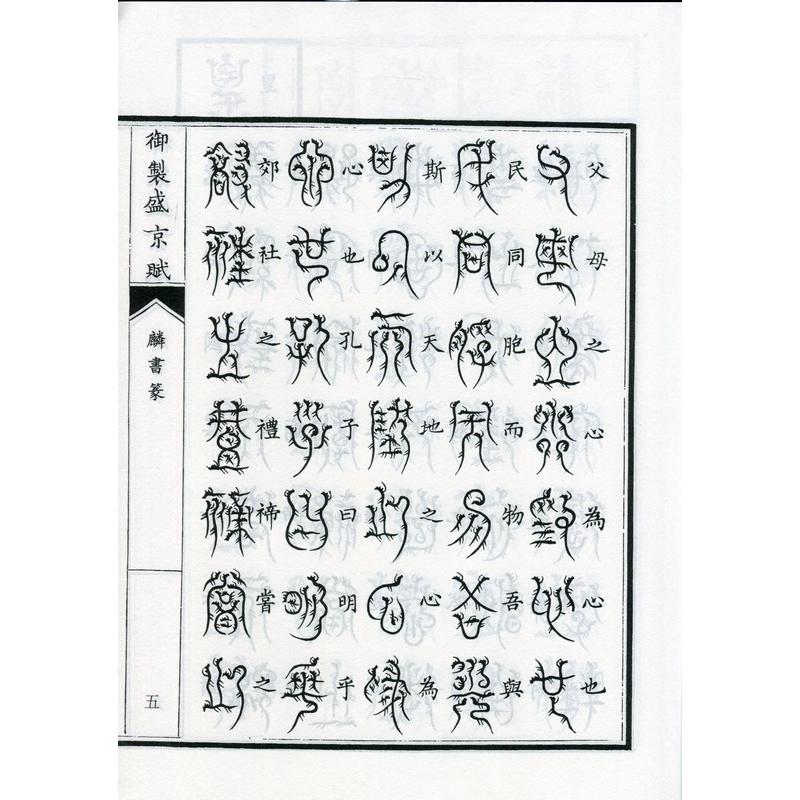 父母之心為心也
民同胞而物吾與
斯以天地之心為
心也孔子曰明乎
郊社之禮禘嘗之
御製盛京賦
麟書篆
五